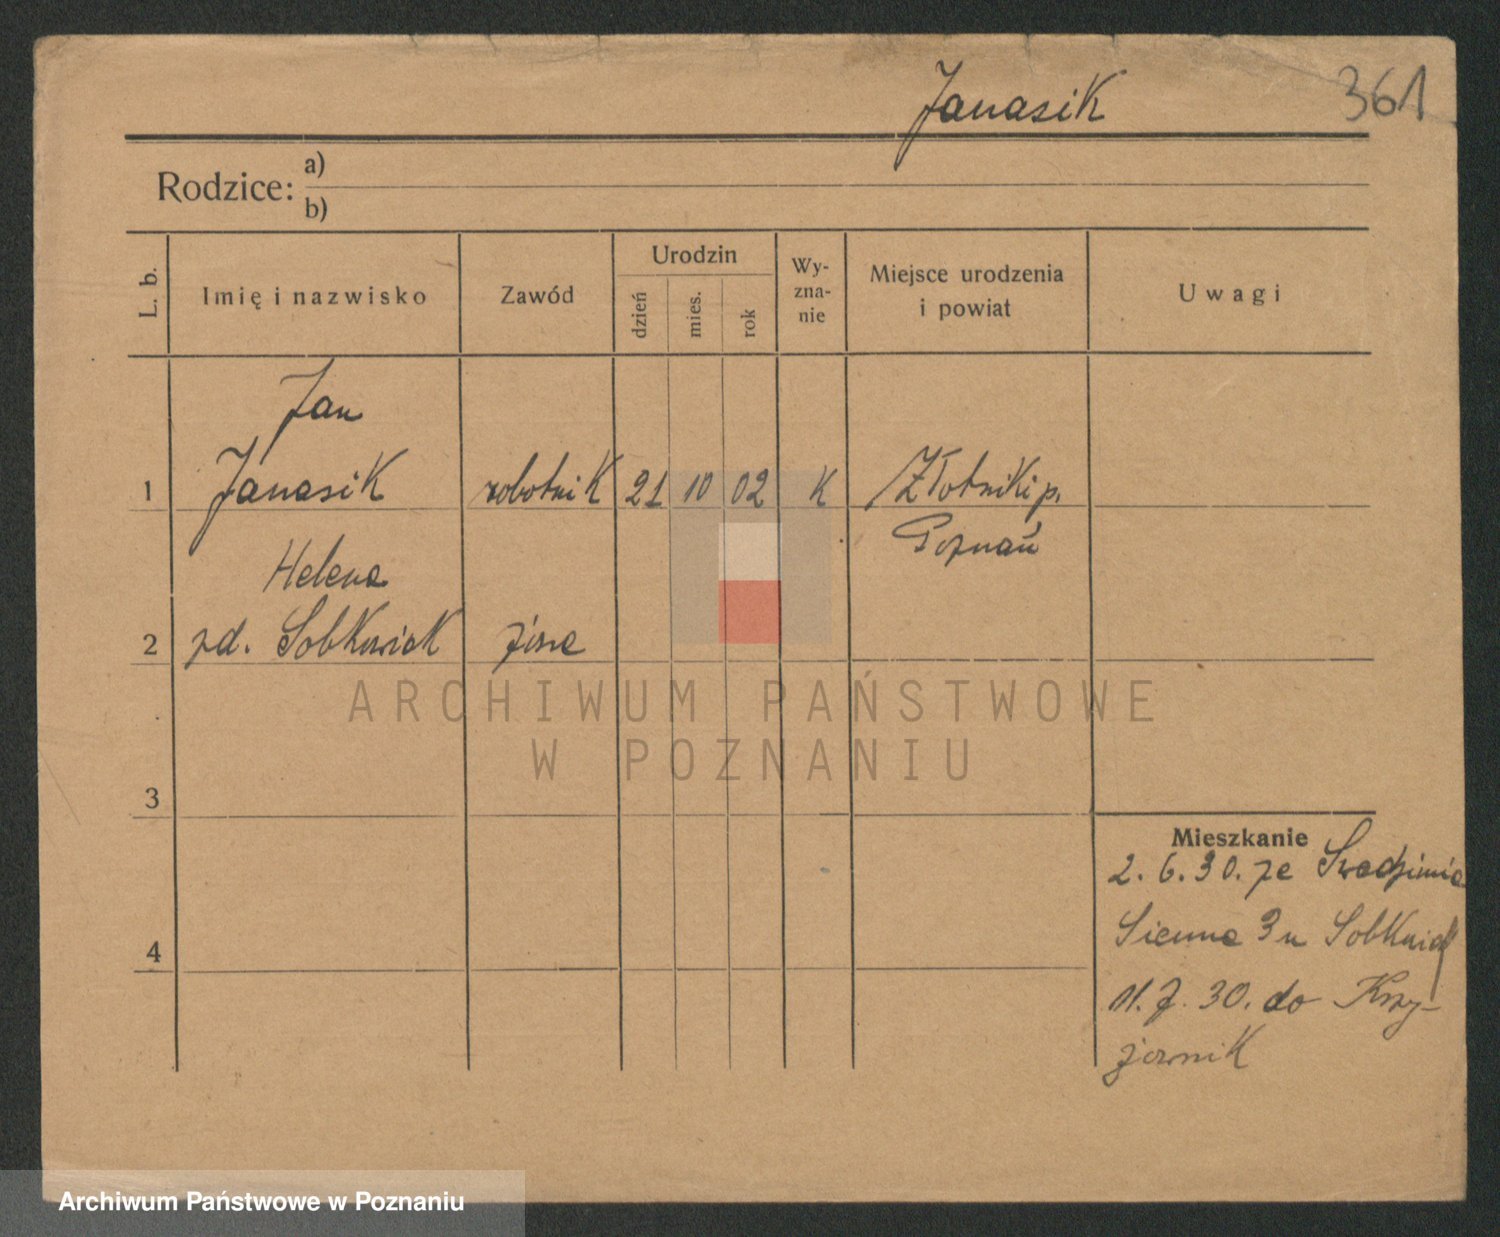 Janasik 361
Rodzice: a)
b)
L. b.
Imię i nazwisko
Zawód
Urodzin
dzień
mies.
rok
Wy-
zna-
nie
Miejsce urodzenia
i powiat
Uwagi
Jan
1 Janasik robotnik 21 10 02 K Złotniki p.
Poznań
Helena
2 zd. Sobkowiak żona
3
4
Mieszkanie
2. 6. 30. ze Swadzimia
Sienna 3 u Sobkowiak
11. 7. 30. do Krzy-
żownik
ARCHIWUM PAŃSTWOWE
W POZNANIU
Archiwum Państwowe w Poznaniu